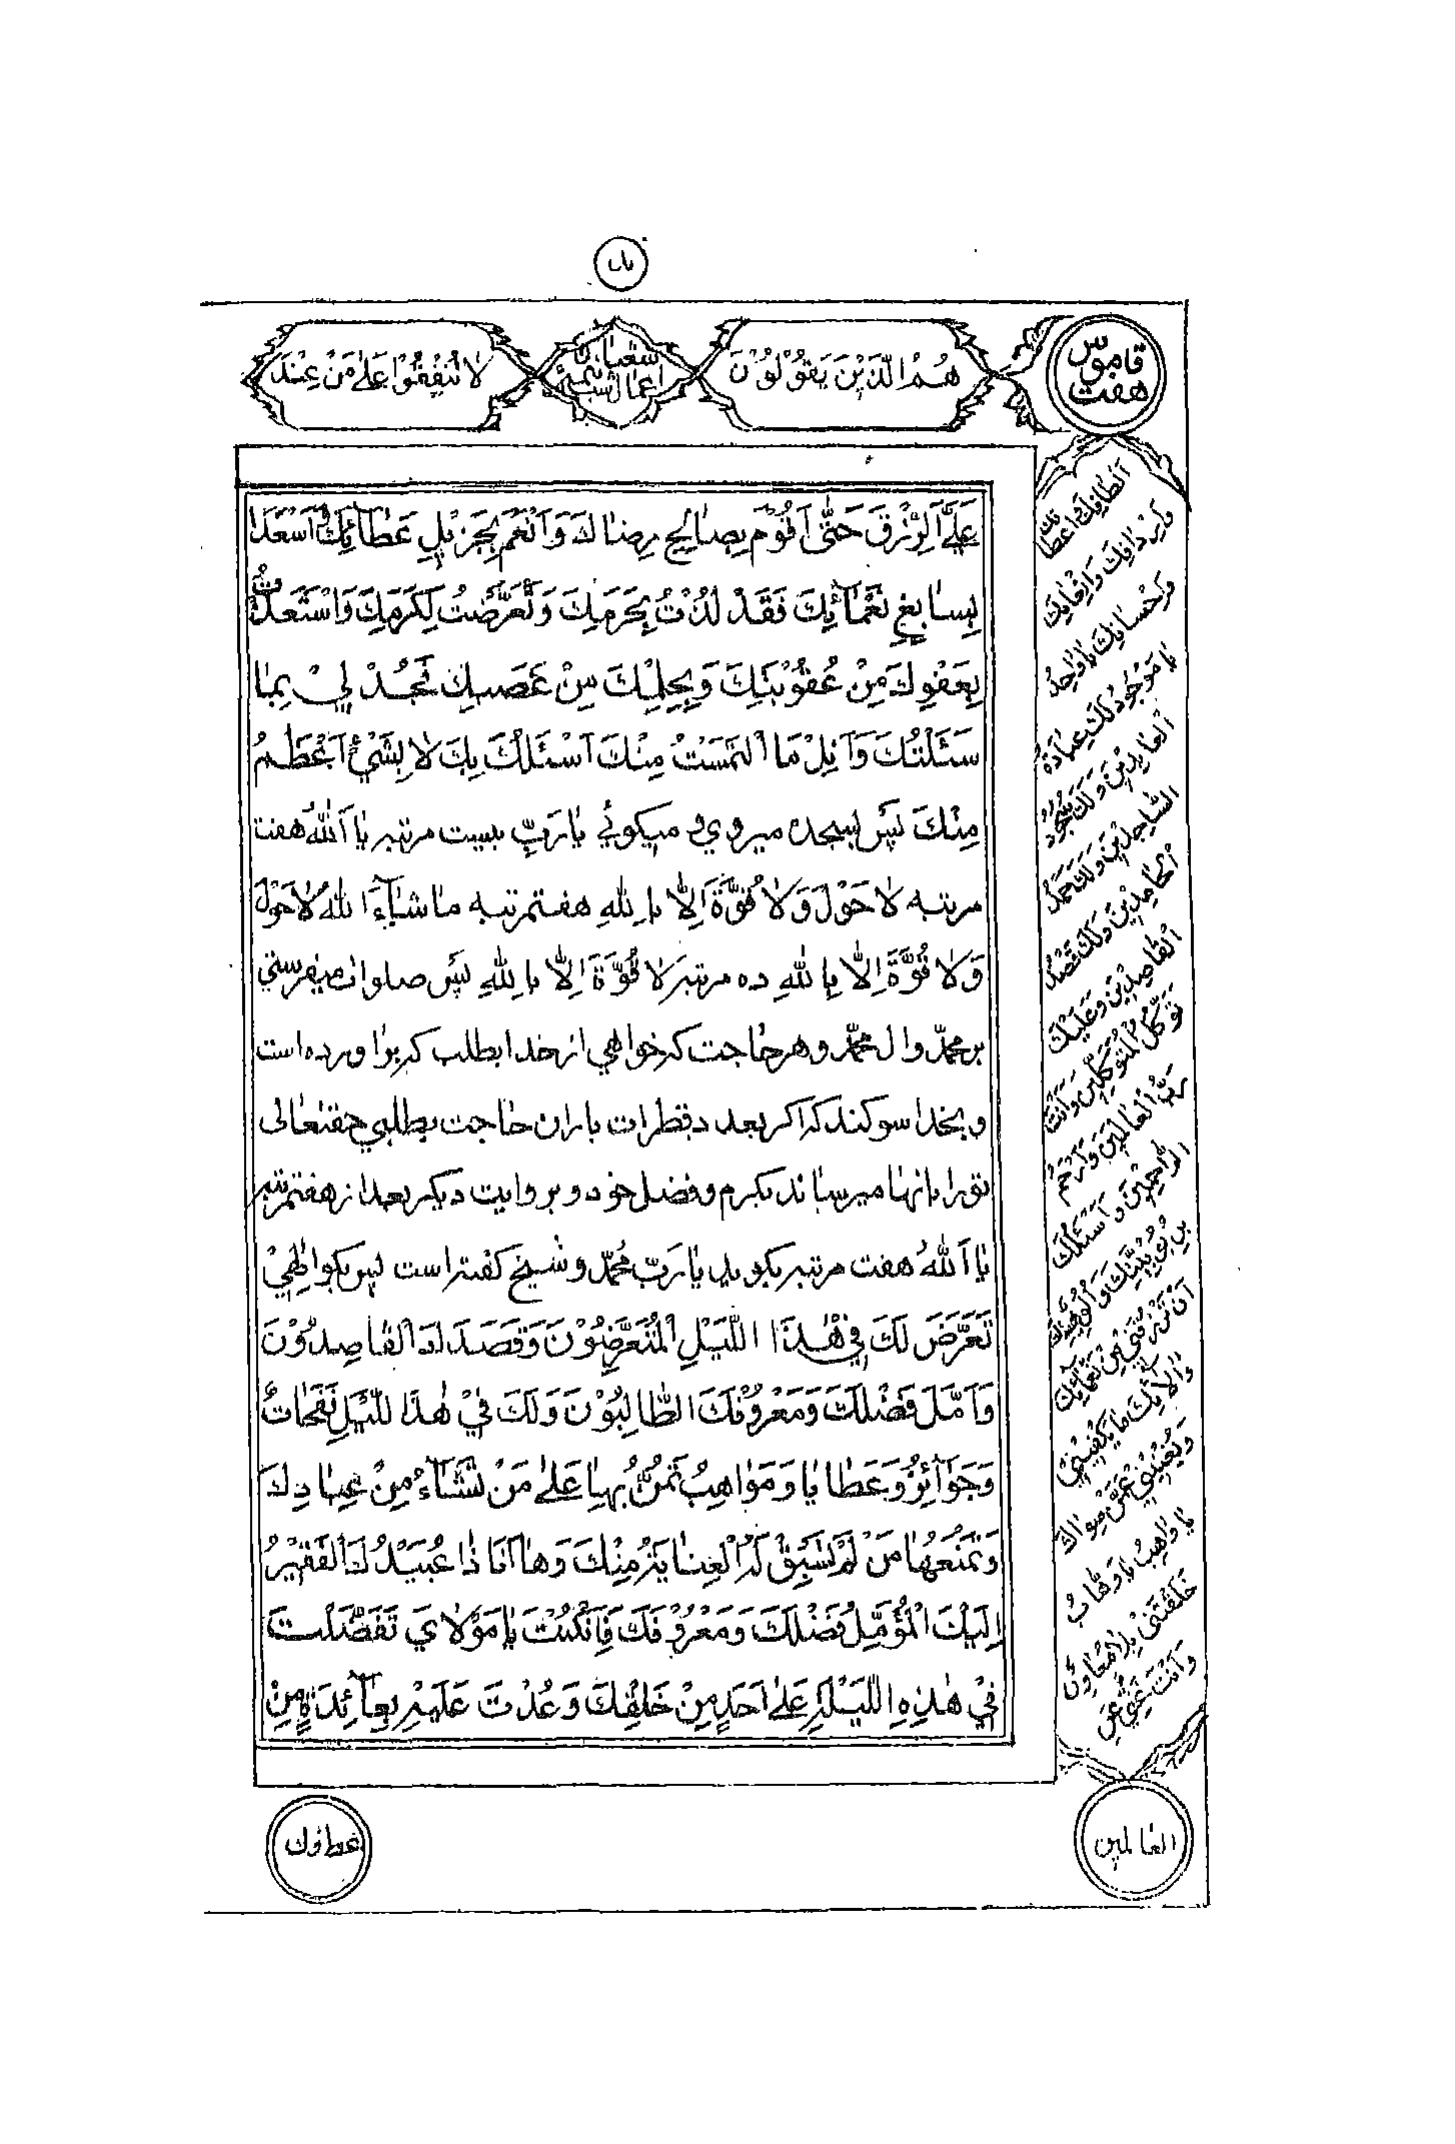 قاموس
هفت
هُمُ الَّذَيْنَ يَقُوْلُوْنَ
اعمال شب نیمهٔ
شعبان
لاٰ تُنْفِقُوْا عَلیٰ مَنْ عِنْدَ
عَلَيَّ اَلرِّزْقَ حَتّٰى اَقُوْمَ بِصٰالِحِ رِضٰاكَ وَاَنْعَمَ بِجَزيْلِ عَطٰآئِكَ وَاَسْعَدَ
بِسٰابِغِ نَعْمٰآئِكَ فَقَدْ لُذْتُ بِحَرَمِكَ وَتَعَرَّضْتُ لِكَرَمِكَ وَاسْتَعَذْتُ
بِعَفْوِكَ مِنْ عُقُوْبَتِكَ وَبِحِلْمِكَ مِنْ غَضَبِكَ فَجُدْ لِيْ بِمٰا
سَئَلْتُكَ وَاَنِلْ مَا الْتَمَسْتُ مِنْكَ اَسْئَلُكَ بِكَ لاٰ بِشَيْءٍ اَعْظَمُ
مِنْكَ پَس بسجده ميروي و ميكوئي يٰا رَبِّ بيست مرتبه يٰا اَللّٰهُ هفت
مرتبه لاٰ حَوْلَ وَلاٰ قُوَّةَ اِلاّٰ بِاللّٰهِ هفتمرتبه مٰا شٰآءَ اللّٰهُ لاٰ حَوْلَ
وَلاٰ قُوَّةَ اِلاّٰ بِاللّٰهِ ده مرتبه لاٰ قُوَّةَ اِلاّٰ بِاللّٰهِ پَس صلوات ميفرستي
بر محمّد وال محمّد و هر حٰاجت كه خواهي از خدا بطلب كه براورده است
و بخدا سوكند كه اكر بعدد قطرات باران حٰاجت بطلبي حقتعالى
تو را بانهٰا ميرساند بكرم و فضل خود و بروايت ديكر بعد از هفتمرتبه
يٰا اَللّٰهُ هفت مرتبه بكويد يٰا رَبَّ مُحَمَّد و شيخ كفته است پس بكو اِلٰهِيْ
تَعَرَّضَ لَكَ فِيْ هٰذَا اللَّيْلِ الْمُتَعَرِّضُوْنَ وَقَصَدَكَ الْقٰاصِدُوْنَ
وَاَمَّلَ فَضْلَكَ وَمَعْرُوْفَكَ الطّٰالِبُوْنَ وَلَكَ فِيْ هٰذَا للَّيْلِ نَفَحٰاتٌ
وَجَوٰآئِزُ وَعَطٰايٰا وَمَوٰاهِبُ تَمُنُّ بِهٰا عَلىٰ مَنْ تَشٰآءُ مِنْ عِبٰادِكَ
وَتَمْنَعُهٰا مَنْ لَمْ تَسْبِقْ لَهُ الْعِنٰايَةُ مِنْكَ وَهٰا اَنَا ذٰا عُبَيْدُكَ الْفَقِيْرُ
اِلَيْكَ الْمُؤَمِّلُ فَضْلَكَ وَمَعْرُوْفَكَ فَاِنْ كُنْتَ يٰا مَوْلاٰيَ تَفَضَّلْتَ
فِيْ هٰذِهِ اللَّيْلَةِ عَلىٰ اَحَدٍ مِنْ خَلْقِكَ وَعُدْتَ عَلَيْهِ بِعٰآئِدَةٍ مِنْ
اَلْطٰافِكَ وَاعْطٰائِكَ
وَاِحْسٰانِكَ يٰا وٰاحِدُ
يٰا مَوْجُودُ لَكَ عِبٰادَةُ
الْعٰابِدِيْنَ وَلَكَ سُجُوْدُ
السّٰاجِدِيْنَ وَلَكَ حَمْدُ
الْحٰامِدِيْنَ وَلَكَ قَصْدُ
الْقٰاصِدِيْنَ وَعَلَيْكَ
تَوَكُّلُ الْمُتَوَكِّلِيْنَ وَاَنْتَ
رَبُّ الْعٰالَمِيْنَ وَاَرْحَمُ
الرّٰاحِمِيْنَ وَاَسْئَلُكَ
بِرُبُوْبِيَّتِكَ وَاُلُوْهِيَّتِكَ
اَنْ تَرْزُقَنِيْ مِنْ نَعْمٰآئِكَ
وَاٰلاٰئِكَ مٰا يَكْفِيْنِيْ
وَيُغْنِيْنِيْ عَمَّنْ سِوٰاكَ
يٰا وٰاهِبُ يٰا وَهّٰابُ
خَلَقْتَنِيْ بِلاٰ مُعٰاوِنٍ
وَاَنْتَ غَنِيٌّ عَنِ
العٰالمين